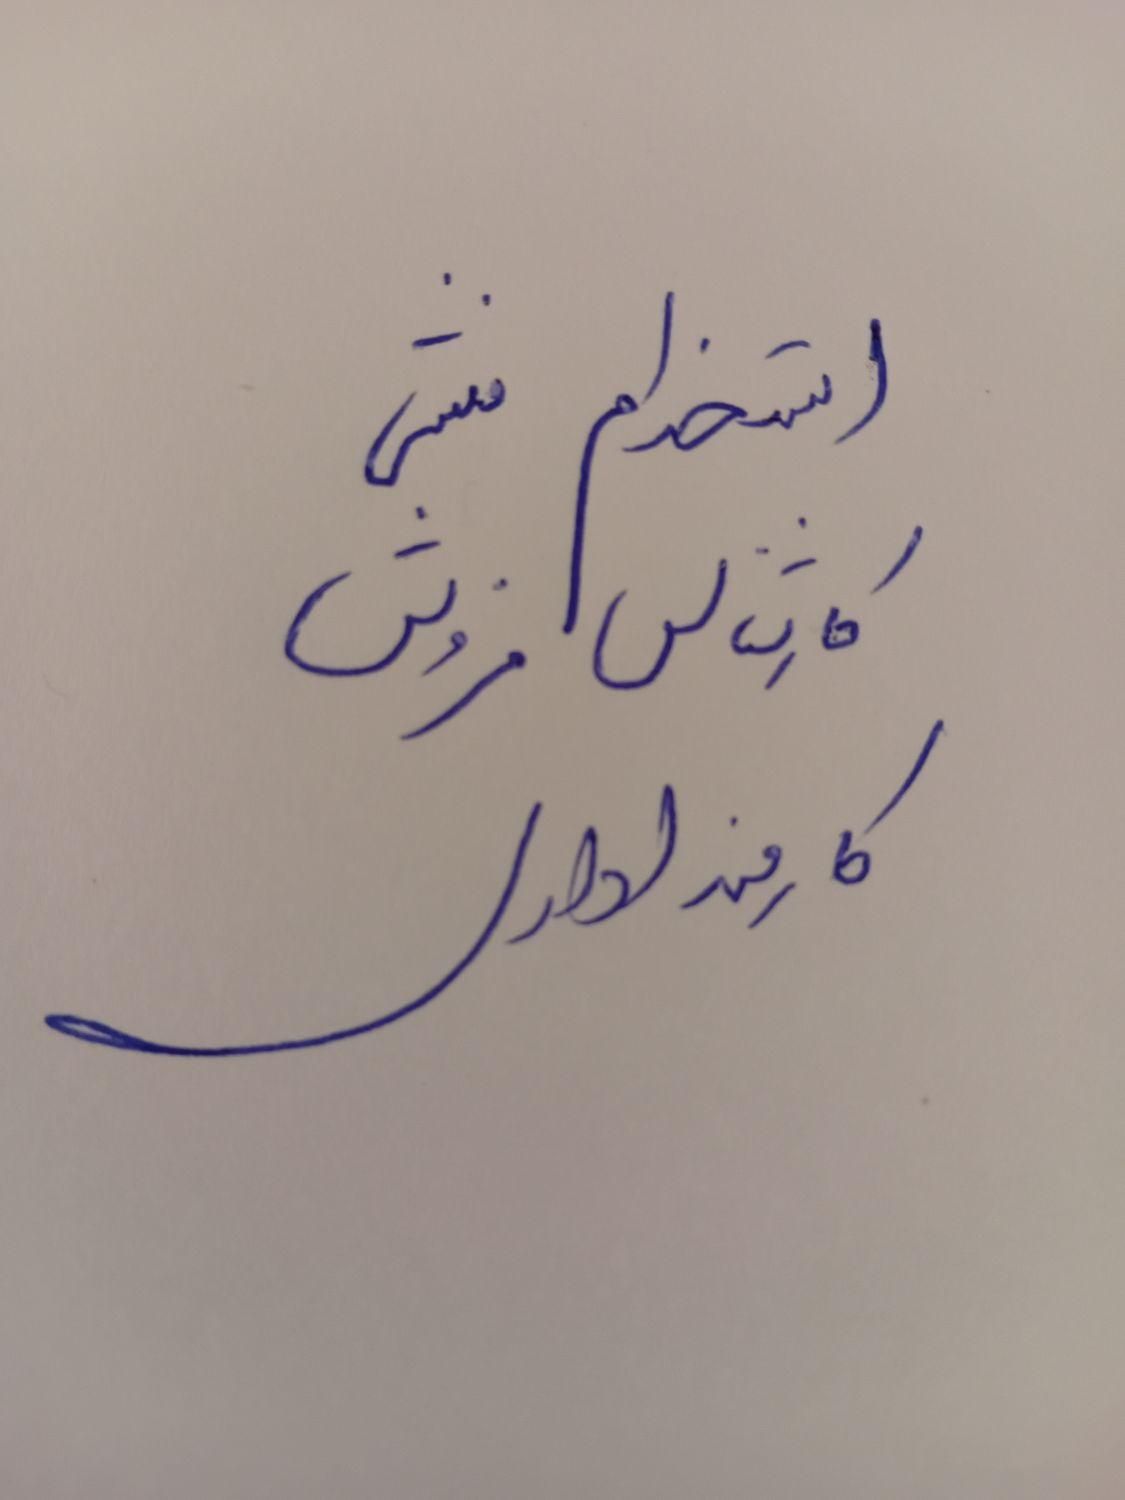 استخدام منشی
کارشناس فروش
کارمند اداری